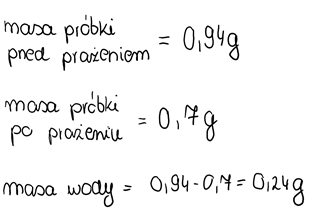 masa próbki
przed prażeniem = 0,94g
masa próbki
po prażeniu = 0,7g
masa wody = 0,94-0,7=0,24g